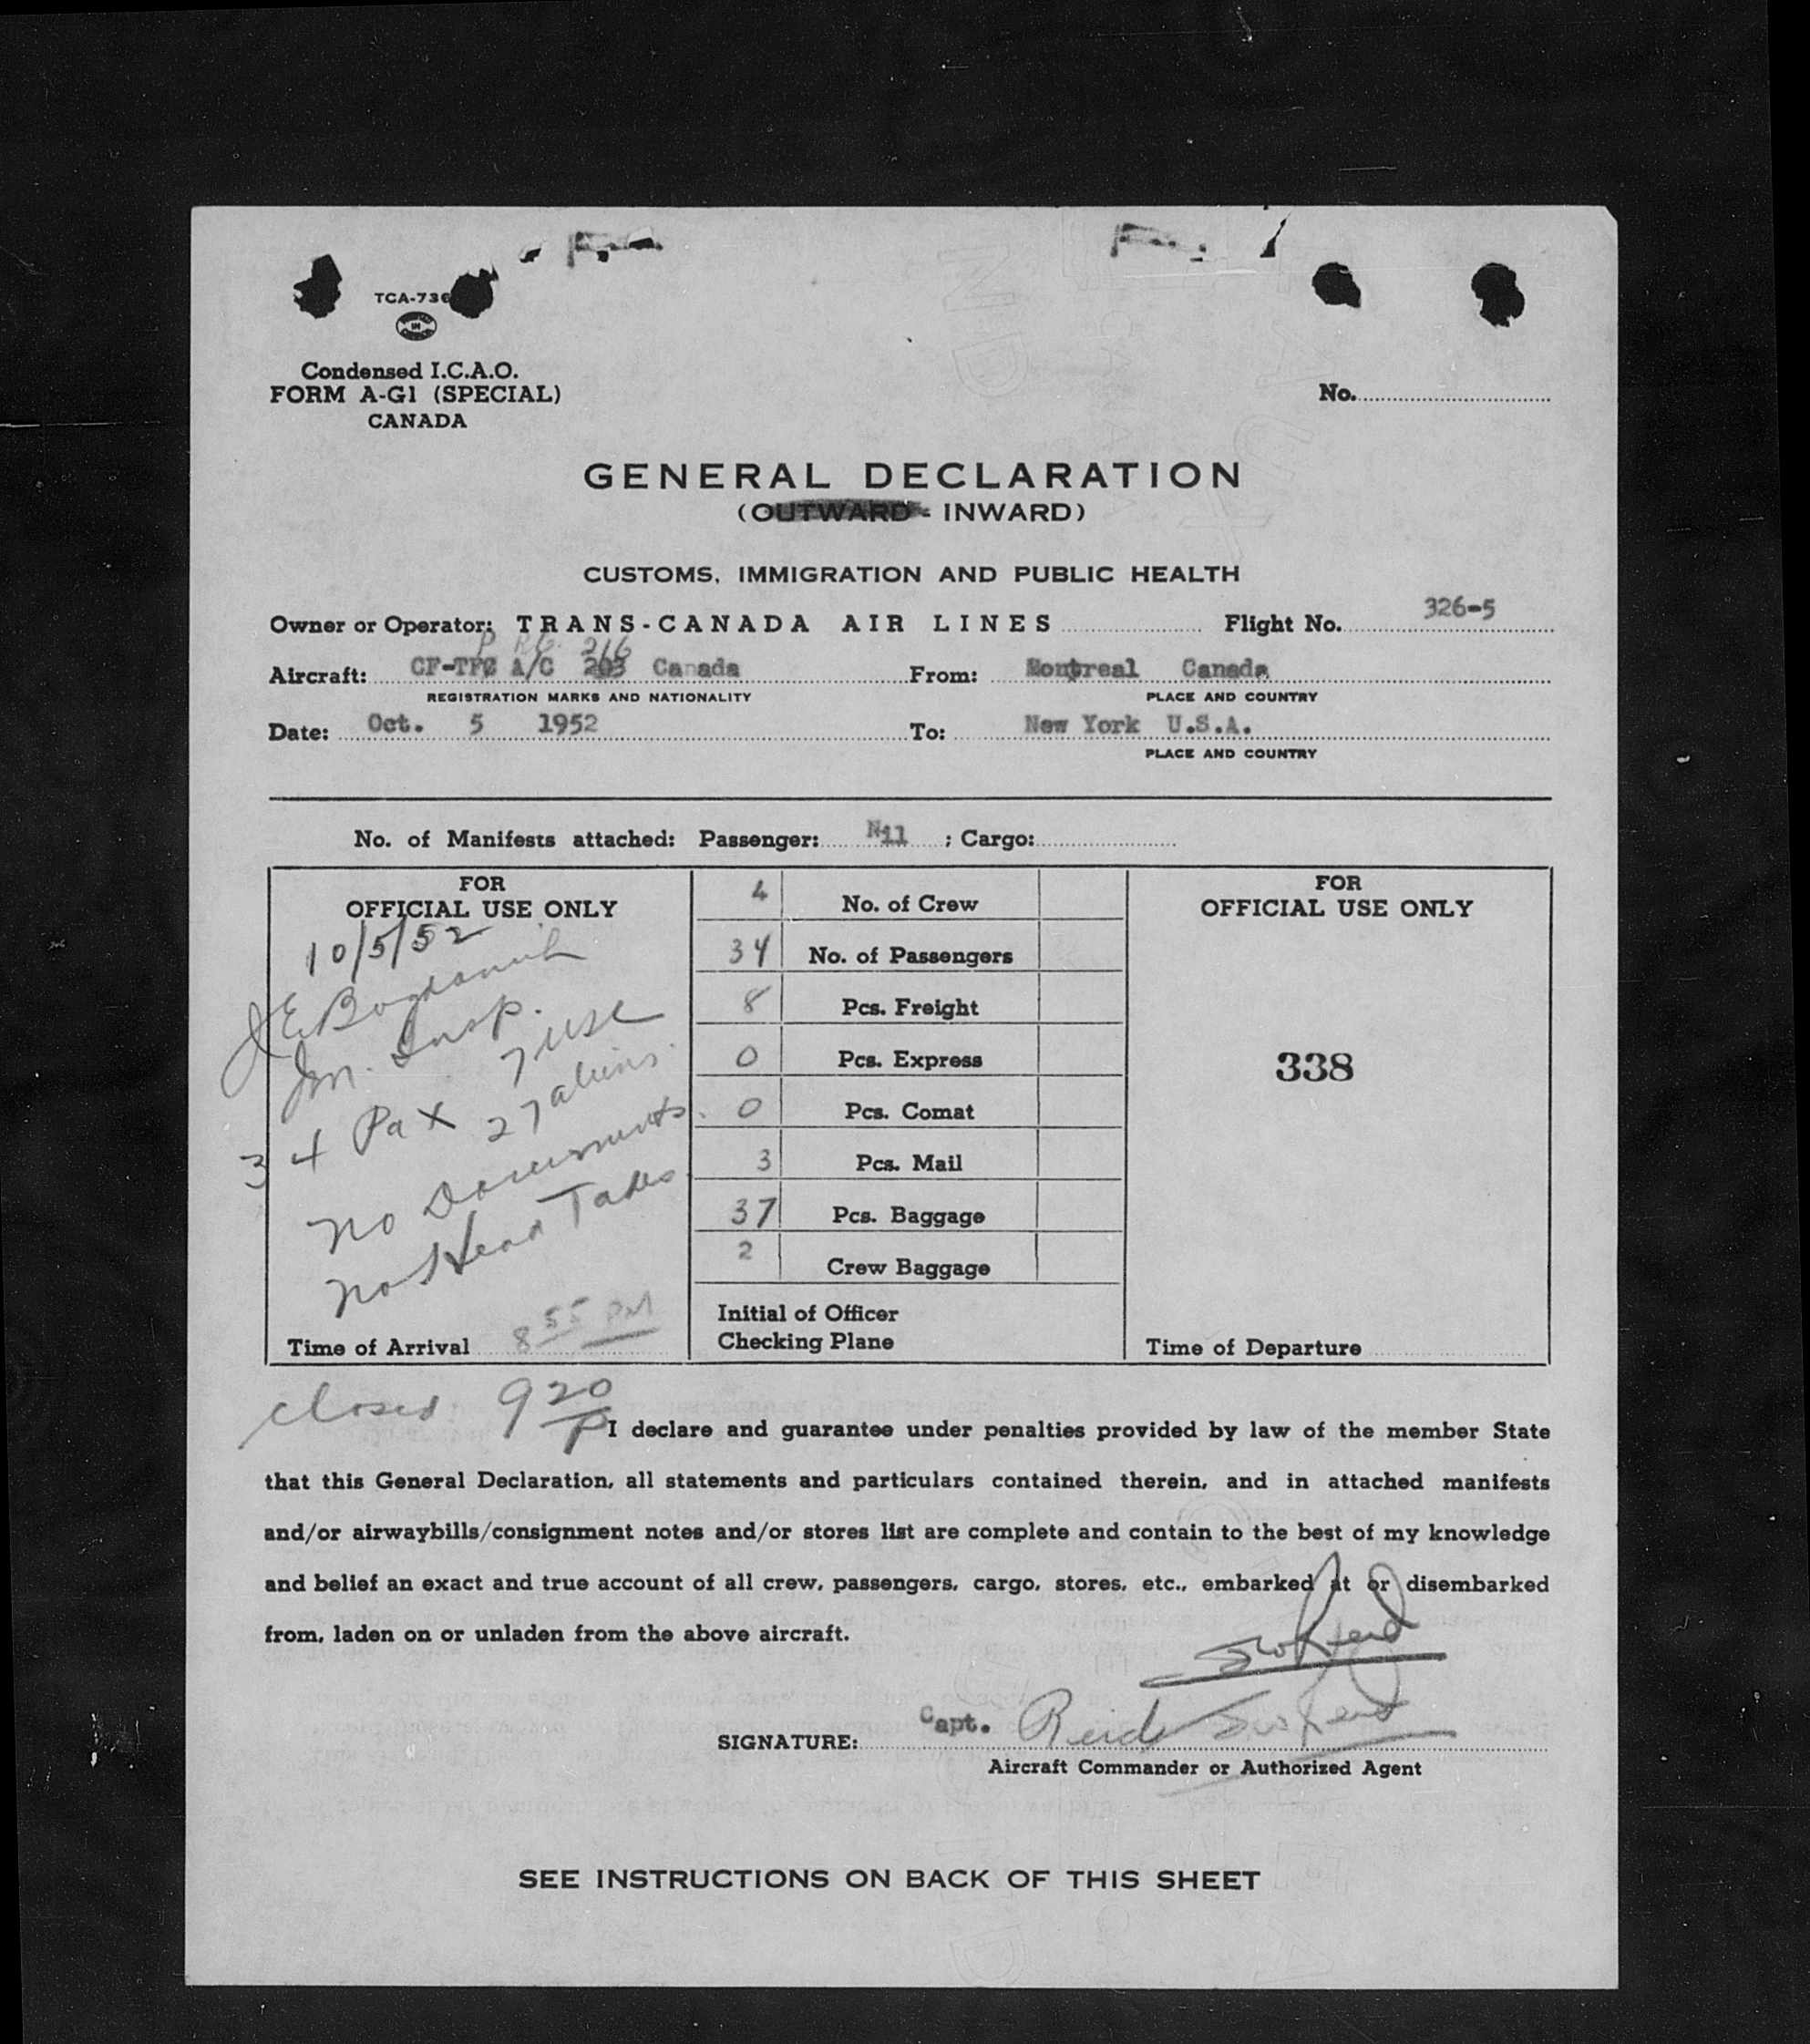 TCA-736
Condensed I.C.A.O.
FORM A-G1 (SPECIAL)
CANADA
No.
GENERAL DECLARATION
(OUTWARD - INWARD)
CUSTOMS, IMMIGRATION AND PUBLIC HEALTH
Owner or Operator: TRANS-CANADA AIR LINES Flight No. 326-5
216
Aircraft: CF-TFC A/C 203 Canada From: Montreal Canada
REGISTRATION MARKS AND NATIONALITY PLACE AND COUNTRY
Date: Oct. 5 1952 To: New York U.S.A.
PLACE AND COUNTRY
No. of Manifests attached: Passenger: Nil ; Cargo:
FOR
OFFICIAL USE ONLY
10/5/52
Im. Insp.
7 USC
34 Pax 27 aliens.
No Documents.
No Head Taxes
Time of Arrival 8 55 PM
4 No. of Crew
34 No. of Passengers
8 Pcs. Freight
0 Pcs. Express
0 Pcs. Comat
3 Pcs. Mail
37 Pcs. Baggage
2 Crew Baggage
Initial of Officer
Checking Plane
FOR
OFFICIAL USE ONLY
338
Time of Departure
closed 9 20 P
I declare and guarantee under penalties provided by law of the member State
that this General Declaration, all statements and particulars contained therein, and in attached manifests
and/or airwaybills/consignment notes and/or stores list are complete and contain to the best of my knowledge
and belief an exact and true account of all crew, passengers, cargo, stores, etc., embarked at or disembarked
from, laden on or unladen from the above aircraft.
SIGNATURE: Capt.
Aircraft Commander or Authorized Agent
SEE INSTRUCTIONS ON BACK OF THIS SHEET